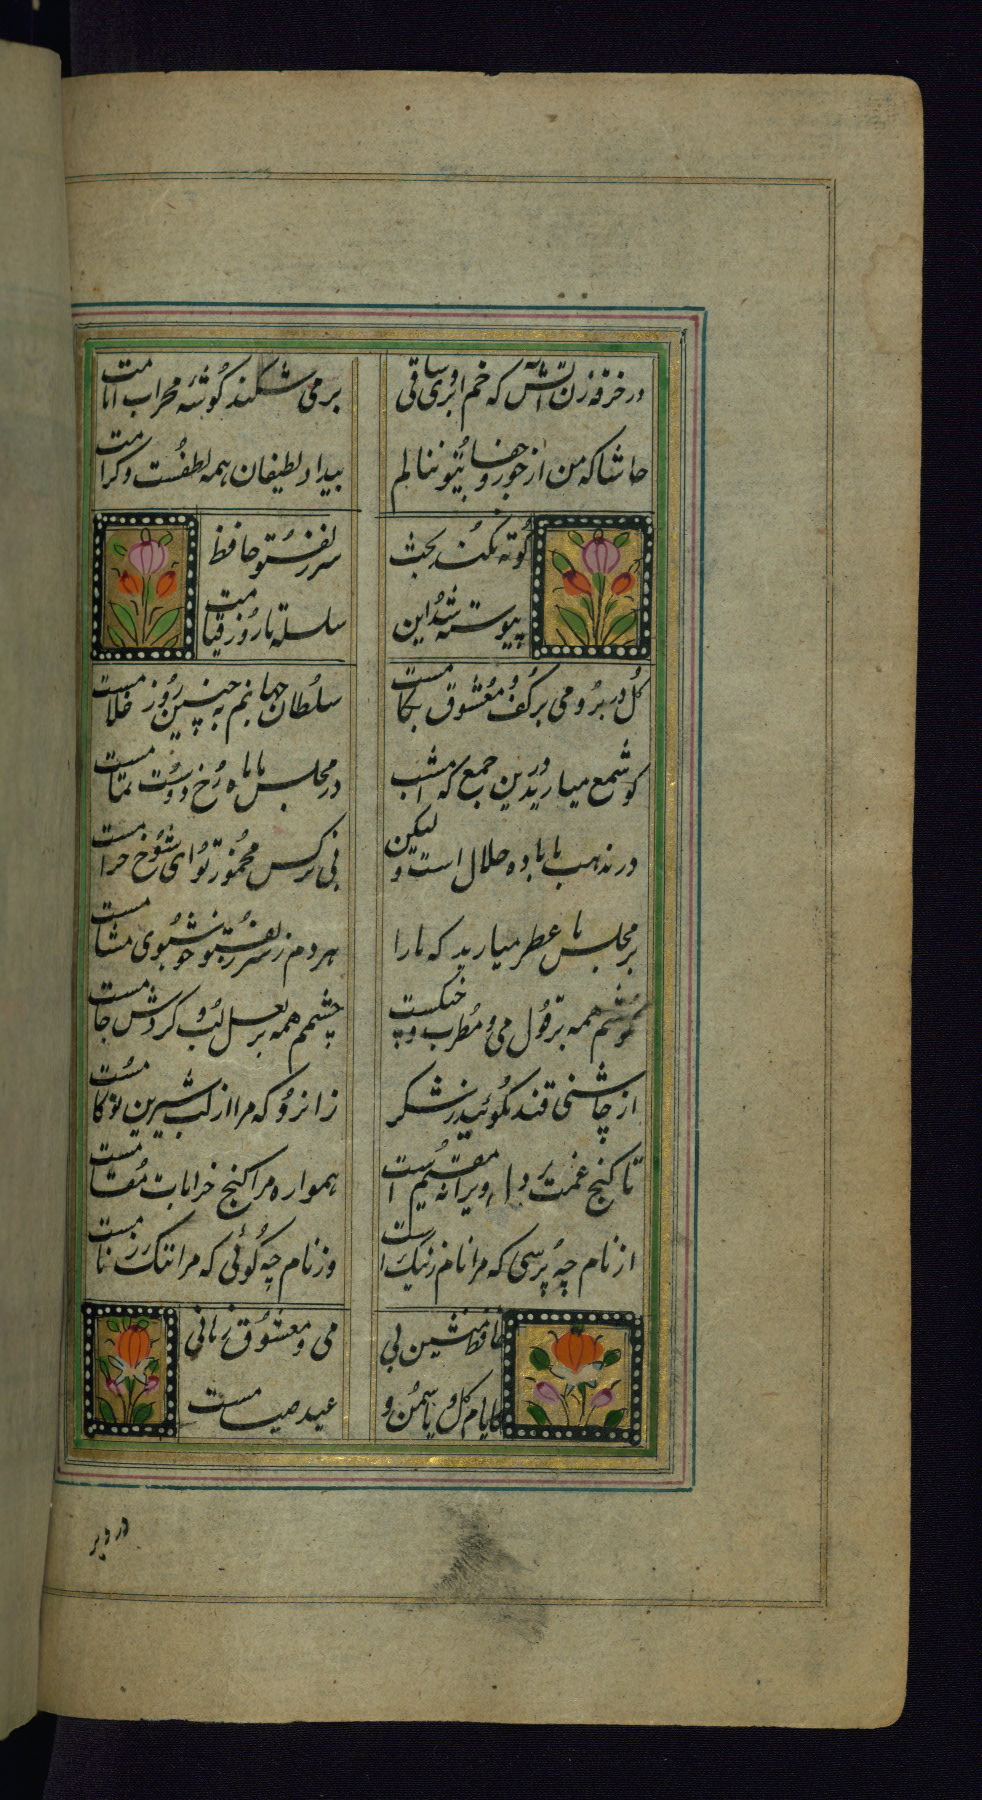 در خرقه زن آتش که خم ابروی ساقی
بر می شکند گوشهٔ محراب امامت
حاشا که من از جور و جفای تو بنالم
بیداد لطیفان همه لطفست و کرامت
کوته نکند بحث
سر زلف تو حافظ
پیوسته شد این
سلسله تا روز قیامت
گل در بر و می بر کف و معشوق بکامست
سلطان جهانم به چنین روز غلامست
گو شمع میارید درین جمع که امشب
در مجلس ما ماه رخ دوست تمامست
در مذهب ما باده حلال است و لیکن
بی نرگس مخمور تو ای شوخ حرامست
بر مجلس ما عطر میارید که ما را
هر دم ز سر زلف تو خوشبوی مشامست
گوشم همه بر قول می و مطرب و چنگست
چشمم همه بر لعل لب و گردش جامست
از چاشنی قند مگوئید ز شکر
زانرو که مرا از لب شیرین تو کامست
تا گنج غمت بر دل ویرانه مقیم است
همواره مرا کنج خرابات مقامست
از نام چه پرسی که مرا نام ز ننگ است
وز نام چه گوئی که مرا ننگ ز نامست
حافظ منشین بی
می و معشوق زمانی
کایام گل و یاسمن و
عید صیامست
در دیر